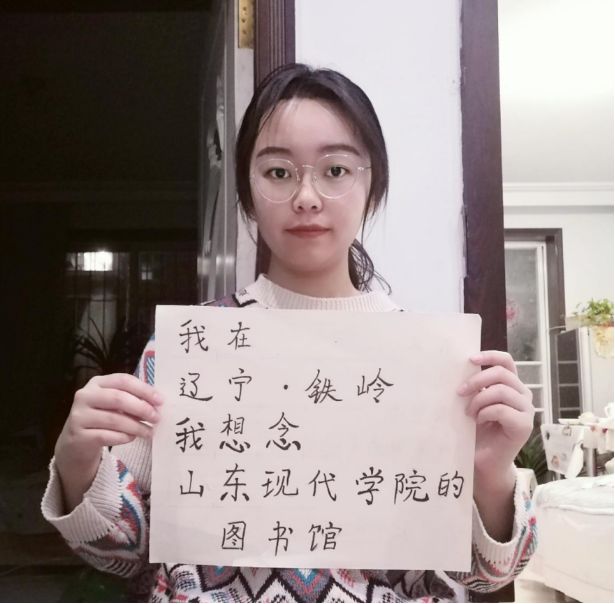 我在
辽宁·铁岭
我想念
山东现代学院的
图书馆